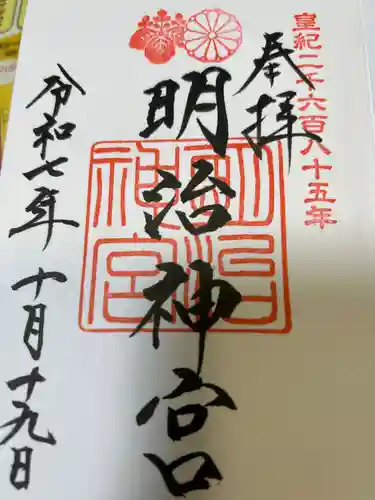 皇紀二千六百八十五年
奉拝
明治神宮
明治神宮
令和七年 十月十九日